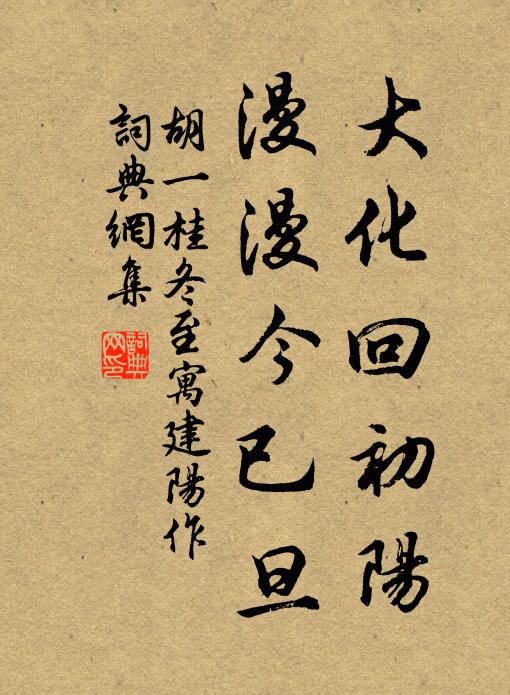 大化回初陽
漫漫今已旦
胡一桂冬至寓建陽作
詞典網集
詞典網印